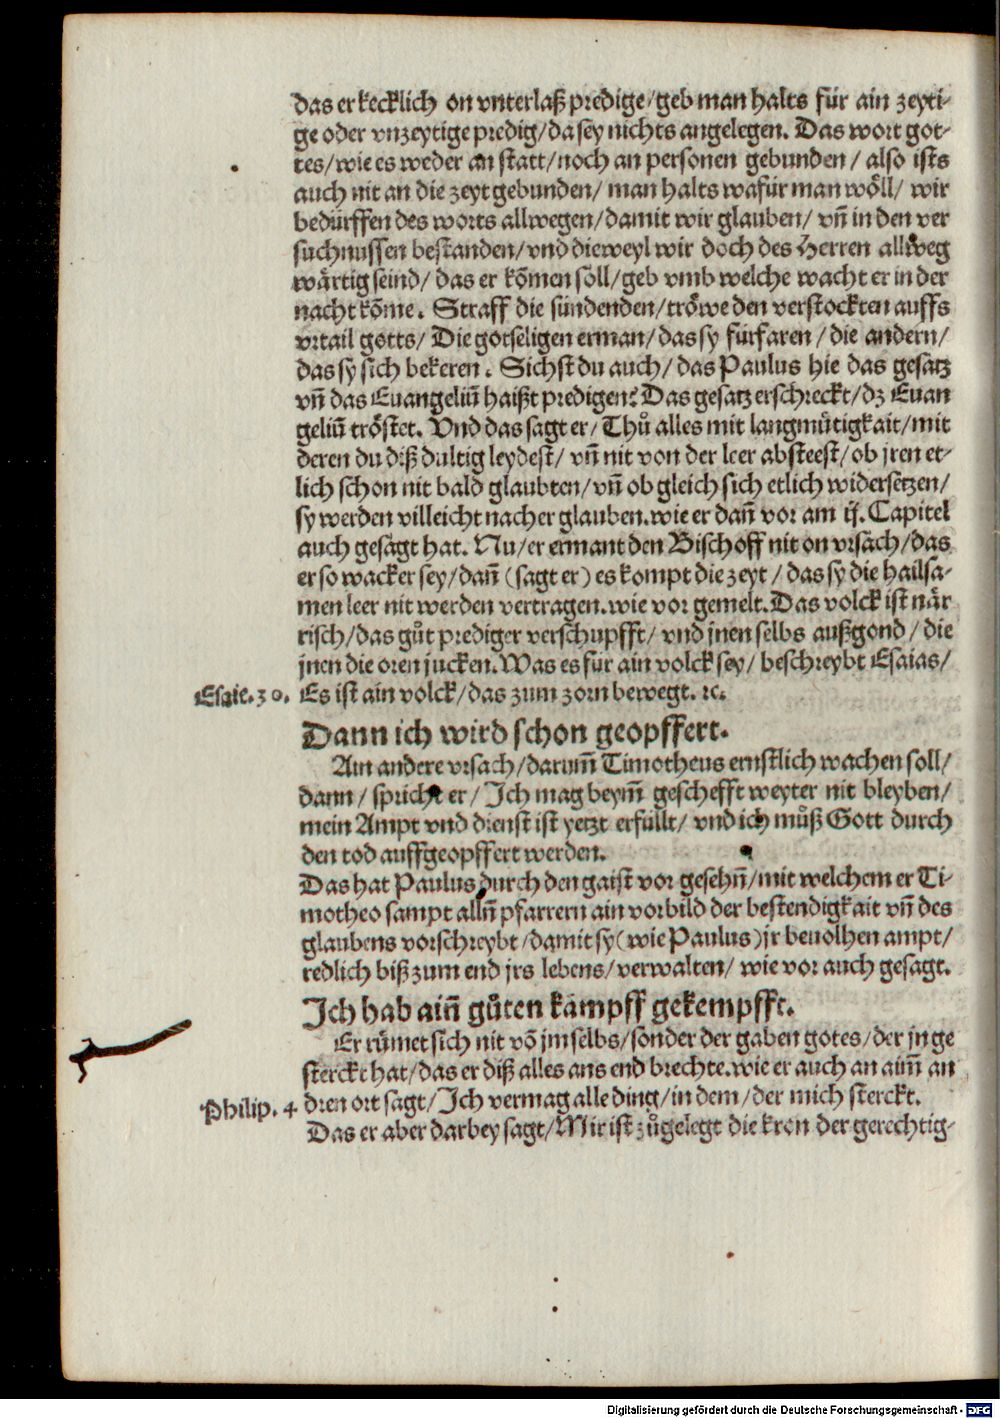 das er kecklich on vnterlaß predige/geb man halts für ain zeyti-
ge oder vnzeytige predig/da sey nichts angelegen. Das wort got-
tes/wie es weder an statt/noch an personen gebunden/ also ists
auch nit an die zeyt gebunden/ man halts wafür man wöll/ wir
bedürffen des worts allwegen/damit wir glauben/ vñ in den ver
suchnussen bestanden/vnd dieweyl wir doch des Herren allweg
wärtig seind/ das er kõmen soll/geb vmb welche wacht er in der
nacht kõme. Straff die sündenden/tröwe den verstockten auffs
vrtail gotts/ Die gotseligen erman/das sy fürfaren/die andern/
das sy sich bekeren. Sichst du auch/das Paulus hie das gesatz
vñ das Euangeliũ haißt predigen? Das gesatz erschreckt/dz Euan
geliũ tröstet. Vnd das sagt er/ Thů alles mit langmůtigkait/mit
deren du diß dultig leydest/ vñ nit von der leer absteest/ob jren et-
lich schon nit bald glaubten/vñ ob gleich sich etlich widersetzen/
sy werden villeicht nacher glauben.wie er dañ vor am ij. Capitel
auch gesagt hat. Nu/er ermant den Bischoff nit on vrsach/das
er so wacker sey/dañ (sagt er) es kompt die zeyt/das sy die hailsa-
men leer nit werden vertragen.wie vor gemelt.Das volck ist när
risch/das gůt prediger verschupfft/ vnd jnen selbs außgond/ die
jnen die oren jucken.Was es für ain volck sey/ beschreybt Esaias/
Esaie.30. Es ist ain volck/das zum zorn bewegt. ꝛc.
Dann ich wird schon geopffert.
Ain andere vrsach/darum̃ Timotheus ernstlich wachen soll/
dann/ spricht er/Ich mag beym̃ geschefft weyter nit bleyben/
mein Ampt vnd dienst ist yetzt erfüllt/ vnd ich můß Gott durch
den tod auffgeopffert werden.
Das hat Paulus durch den gaist vor gesehñ/mit welchem er Ti-
motheo sampt allñ pfarrern ain vorbild der bestendigkait vñ des
glaubens vorschreybt/damit sy(wie Paulus)jr beuolhen ampt/
redlich biß zum end jrs lebens/verwalten/ wie vor auch gesagt.
Ich hab aiñ gůten kampff gekempfft.
Er růmet sich nit võ jm selbs/sonder der gaben gotes/der jn ge
sterckt hat/das er diß alles ans end brechte.wie er auch an aim̃ an
Philip. 4 dren ort sagt/Ich vermag alle ding/in dem/der mich sterckt.
Das er aber darbey sagt/Mir ist zůgelegt die kron der gerechtig-
Digitalisierung gefördert durch die Deutsche Forschungsgemeinschaft - DFG